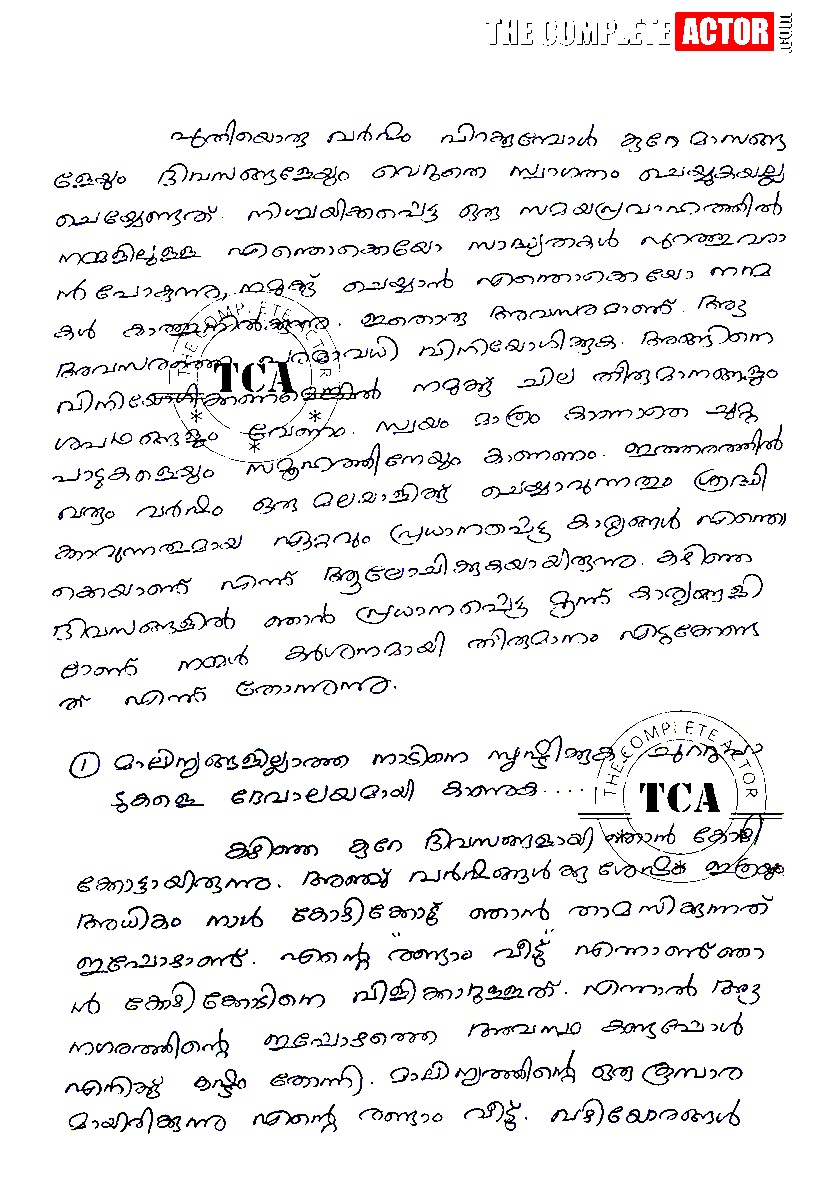 THE COMPLETE ACTOR
പുതിയൊരു വർഷം പിറക്കുമ്പോൾ കുറേ മാസങ്ങ
ളേയും ദിവസങ്ങളേയും വെറുതെ സ്വാഗതം ചെയ്യുകയല്ല
ചെയ്യേണ്ടത്. നിശ്ചയിക്കപ്പെട്ട ഒരു സമയപ്രവാഹത്തിൽ
നമ്മളിലുള്ള എന്തൊക്കെയോ സാദ്ധ്യതകൾ പുറത്തുവരാ
ൻ പോകുന്നു, നമുക്കു ചെയ്യാൻ എന്തൊക്കെയോ നന്മ
കൾ കാത്തുനിൽക്കുന്നു. ഇതൊരു അവസരമാണ്. ആ
അവസരത്തെ പരമാവധി വിനിയോഗിക്കുക. അങ്ങിനെ
വിനിയോഗിക്കണമെങ്കിൽ നമുക്കു ചില തീരുമാനങ്ങളും
ശപഥങ്ങളും വേണം. സ്വയം മാത്രം കാണാതെ ചുറ്റു
പാടുകളെയും സമൂഹത്തിനേയും കാണണം. ഇത്തരത്തിൽ
വരും വർഷം ഒരു മലയാളിക്ക് ചെയ്യാവുന്നതും ശ്രദ്ധി
ക്കാവുന്നതുമായ ഏറ്റവും പ്രധാനപ്പെട്ട കാര്യങ്ങൾ എന്തൊ
ക്കെയാണ് എന്ന് ആലോചിക്കുകയായിരുന്നു. കഴിഞ്ഞ
ദിവസങ്ങളിൽ ഞാൻ പ്രധാനപ്പെട്ട മൂന്ന് കാര്യങ്ങളി
ലാണ് നമ്മൾ കർശനമായി തീരുമാനം എടുക്കേണ്ട
ത് എന്ന് തോന്നുന്നു.
① മാലിന്യങ്ങളില്ലാത്ത നാടിനെ സൃഷ്ടിക്കുക ചുറ്റുപാ
ടുകളെ ദേവാലയമായി കാണുക....
കഴിഞ്ഞ കുറേ ദിവസങ്ങളായി ഞാൻ കോഴി
ക്കോട്ടായിരുന്നു. അഞ്ചു വർഷങ്ങൾക്കു ശേഷം ഇത്രയും
അധികം നാൾ കോഴിക്കോട്ട് ഞാൻ താമസിക്കുന്നത്
ഇപ്പോഴാണ്. എന്റെ "രണ്ടാം വീട്" എന്നാണ് ഞാ
ൻ കോഴിക്കോടിനെ വിളിക്കാറുള്ളത്. എന്നാൽ ആ
നഗരത്തിന്റെ ഇപ്പോഴത്തെ അവസ്ഥ കണ്ടപ്പോൾ
എനിക്കു കഷ്ടം തോന്നി. മാലിന്യത്തിന്റെ ഒരു കൂമ്പാര
മായിരിക്കുന്നു എന്റെ രണ്ടാം വീട്. വഴിയോരങ്ങൾ
THE COMPLETE ACTOR
TCA
THE COMPLETE ACTOR
TCA